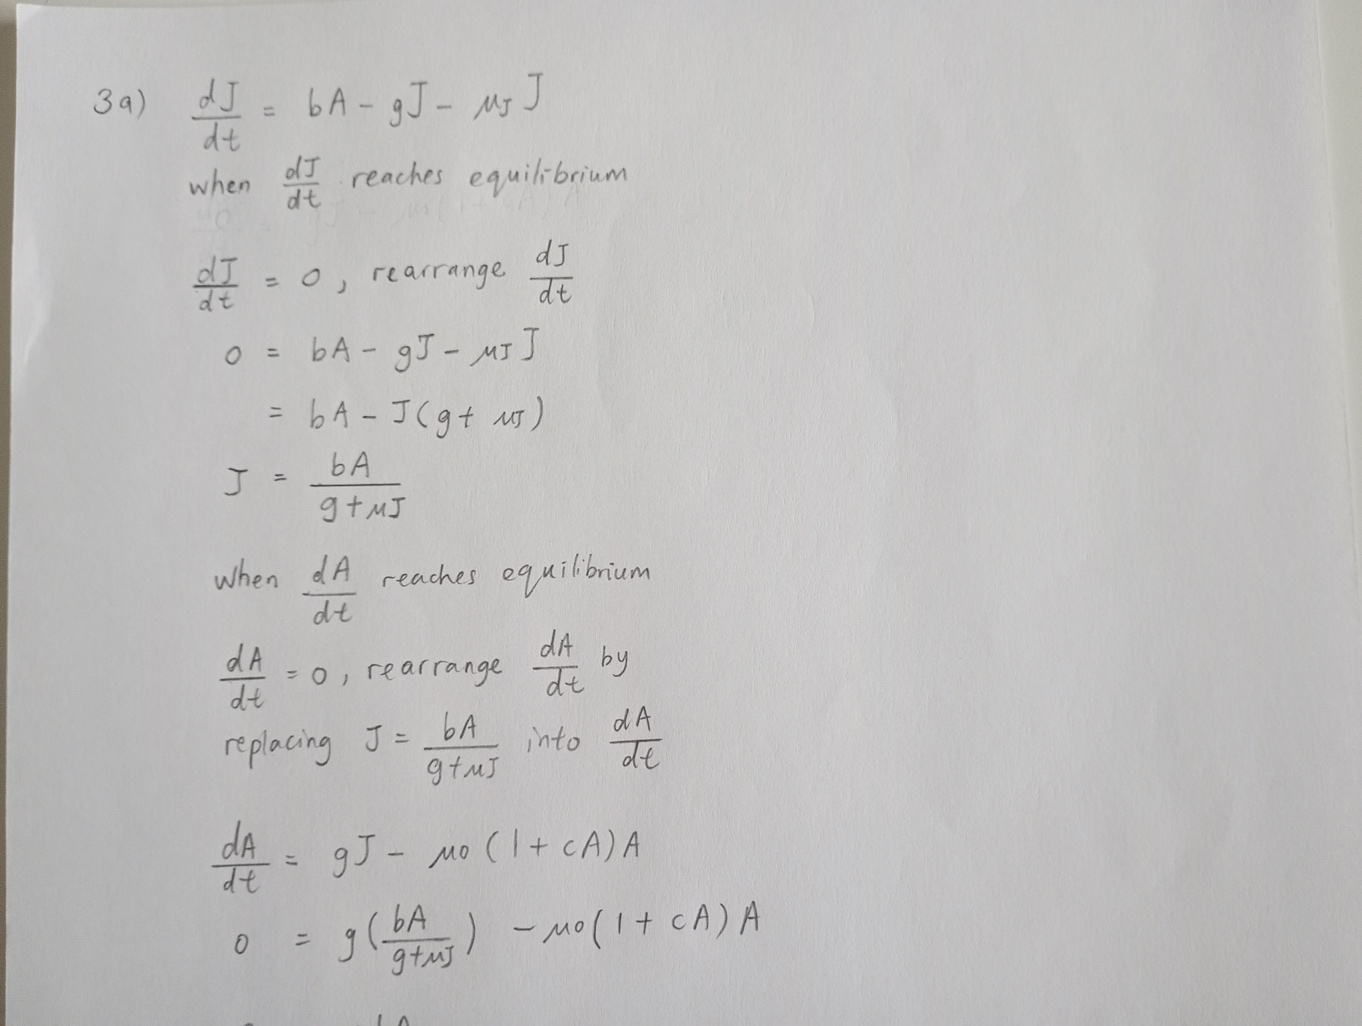 3a) dJ/dt = bA - gJ - μJ J
when dJ/dt reaches equilibrium
dJ/dt = 0, rearrange dJ/dt
0 = bA - gJ - μJ J
= bA - J(g + μJ)
J = bA/g+μJ
When dA/dt reaches equilibrium
dA/dt = 0, rearrange dA/dt by
replacing J = bA/g+μJ into dA/dt
dA/dt = gJ - μ0 (1 + cA) A
0 = g(bA/g+μJ) - μ0(1 + cA) A